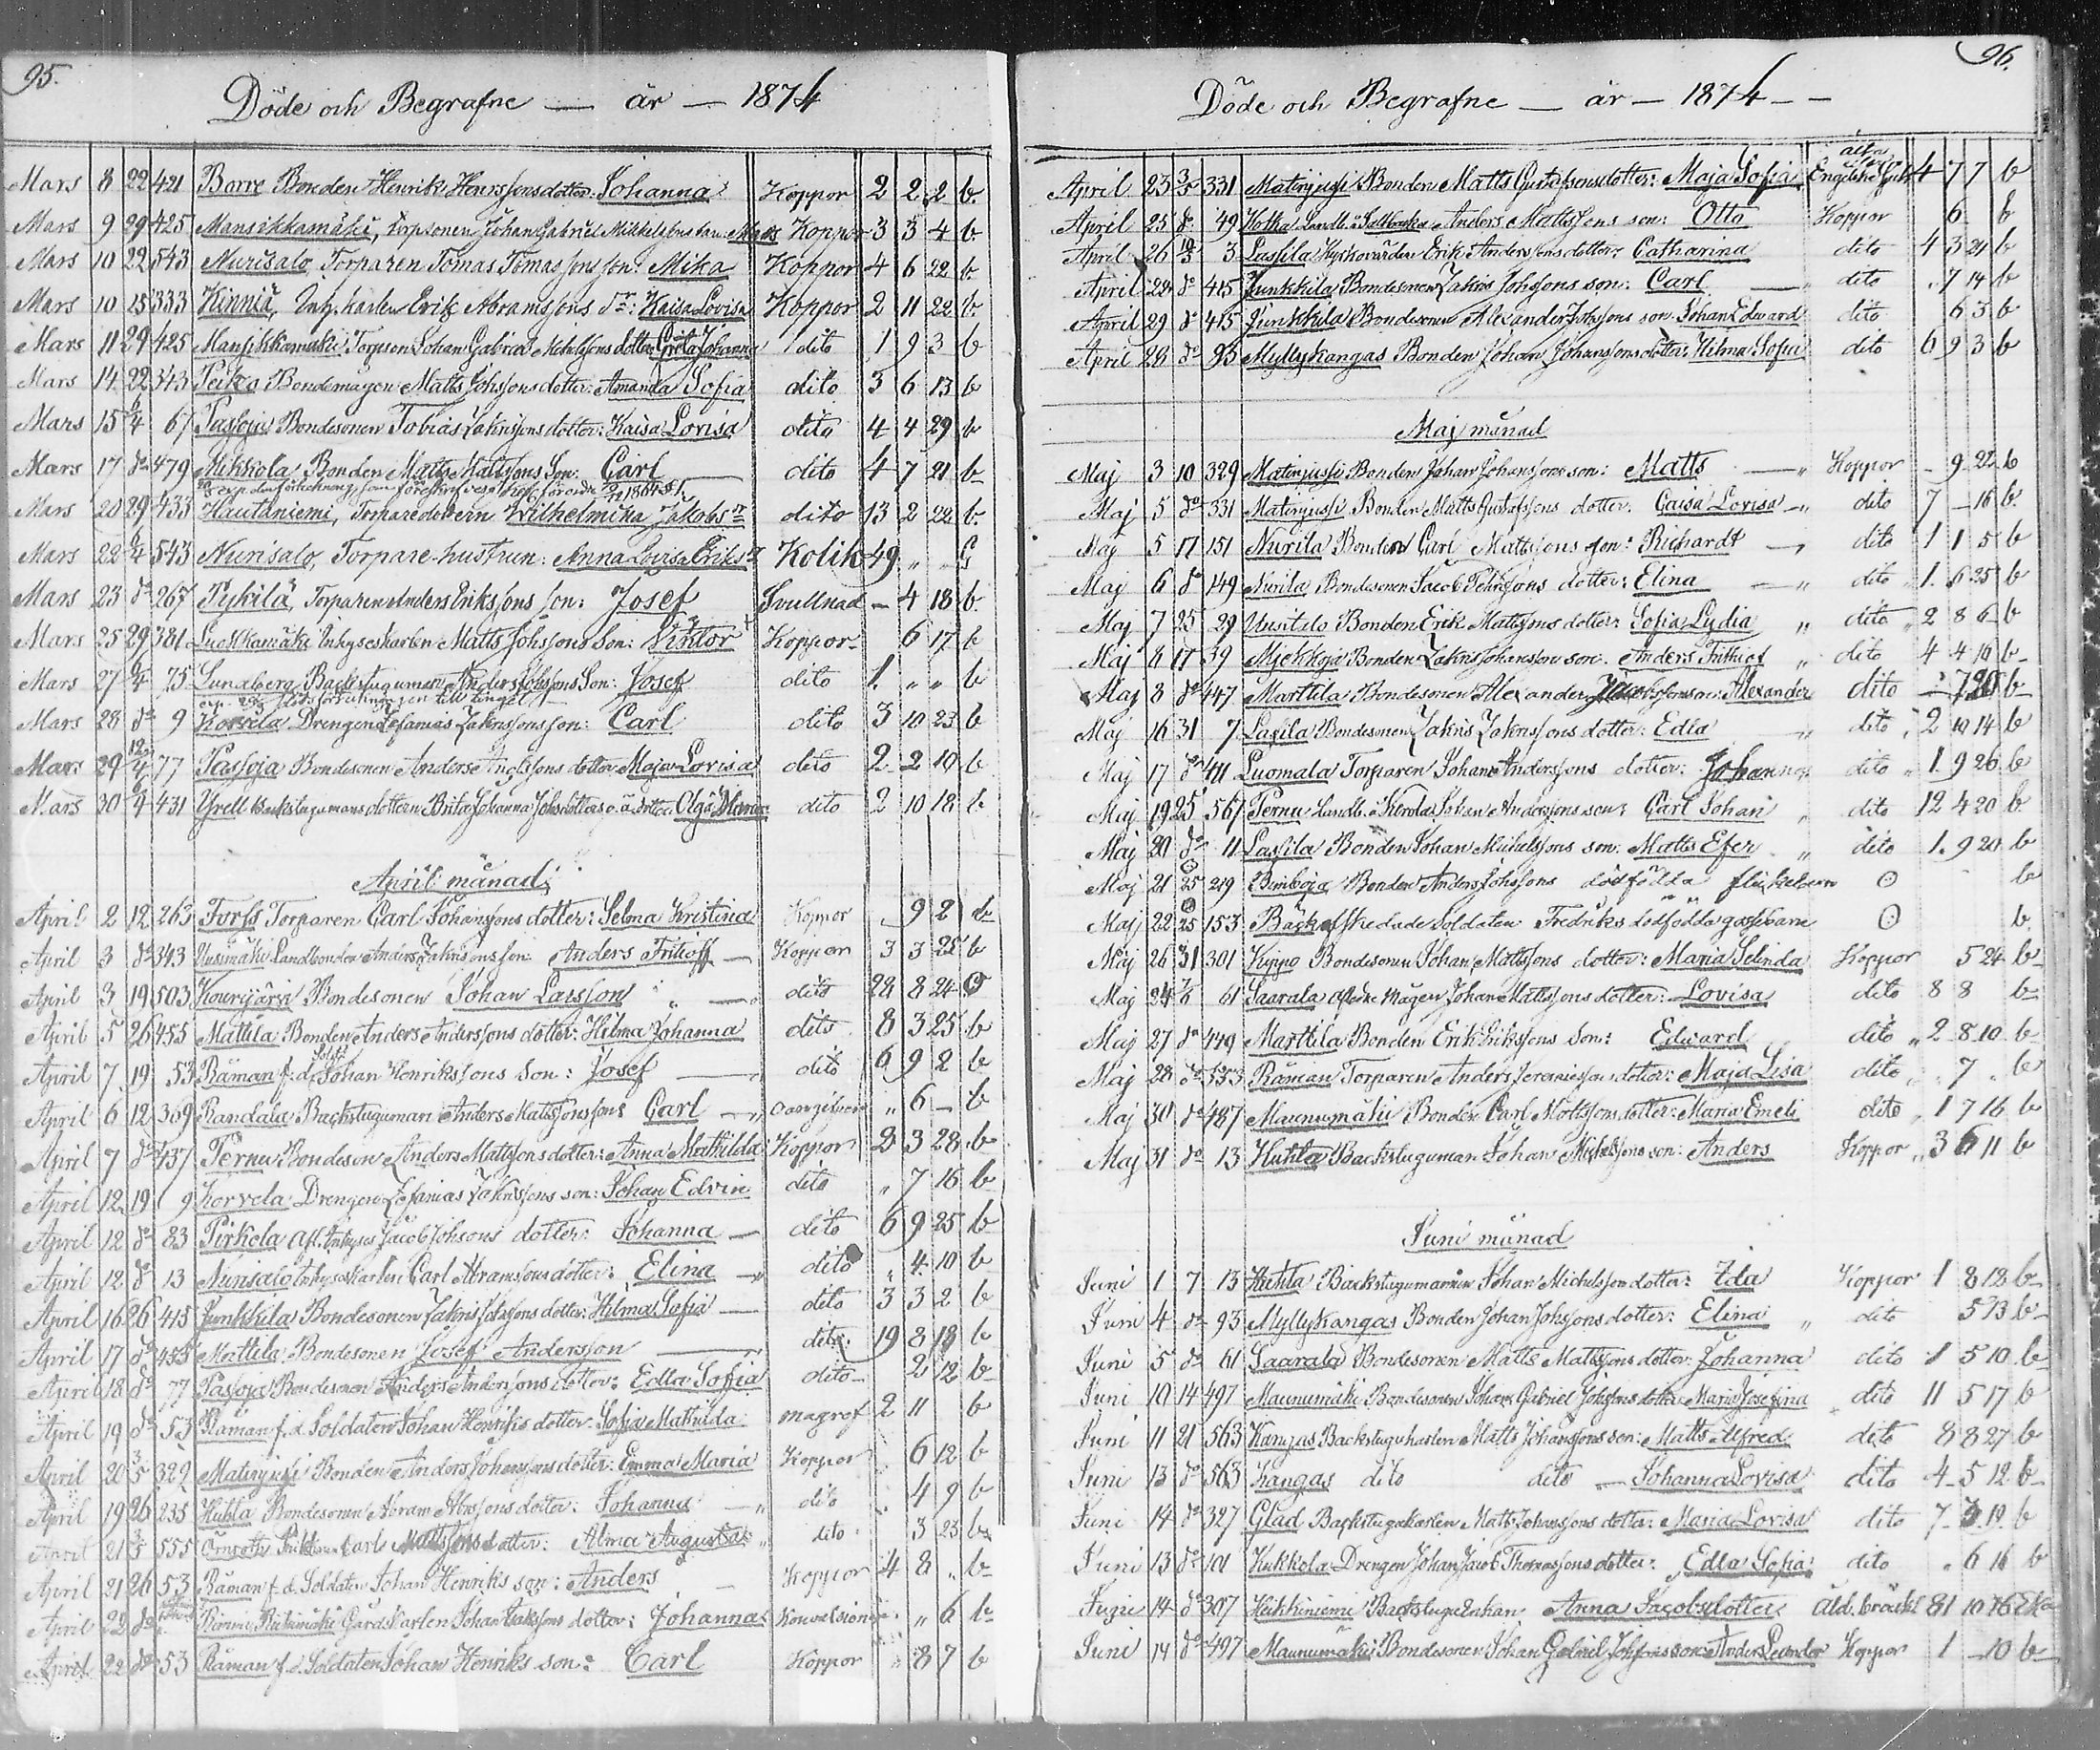 95.
Döde och Begrafne — år — 1874
Mars 8 22 421 Borre Bonden Henrik Henrssons dotter: Johanna Koppor 2 2 2 b.
Mars 9 29 425 Mansikkamäki, Torpsonen Johan Gabriel Mikkelssons barn Matts Koppor 3 3 4 b.
Mars 10 22 543 Nurisalo, Torparen Tomas Tomassons son: Mika Koppor 4 6 22 b.
Mars 10 15 333 Kinniä, Inh. karlen Erik Abramssons dr: Kaisa Lovisa Koppor 2 11 22 b.
Mars 11 29 425 Mansikkamäki Torpson Johan Gabriel Michelssons dotter Greta Johanna dito 1 9 3 b
Mars 14 22 343 Peika Bondemågen Matts Johssons dotter: Amanda Sofia dito 3 6 13 b
Mars 15 6/4 67 Passoja Bondesonen Tobias Zakrissons dotter: Kaisa Lovisa dito 4 4 29 b
Mars 17 do 479 Mikkola Bonden Matts Mattssons Son: Carl dito 4 7 21 b
Mars 20 29 433 Hautaniemi, Torparedottern Wilhelmina Jakobsdr dito 13 2 22 b.
Mars 22 6/4 543 Nurisalo, Torpare-hustrun: Anna Lovisa Eriksdr Kolik 49 „ „ G
Mars 23 do 267 Pykilä, Torparen Anders Erikssons son: Josef Svullnad — 4 18 b.
Mars 25 29 381 Luokkamäki Inhyseskarlen Matts Johssons Son: Viktor Koppor 6 17 b
Mars 27 6/4 75 Lundberg Backstuguman Anders Johssons Son: Josef dito 1. „ „ b
Mars 28 do 9 Korvela Drengen Zefanias Zakrissons son: Carl dito 3 10 23 b
Mars 29 12/4 77 Passoja Bondesonen Anders Anderssons dotter Maja Lovisa dito 2 2 10 b
Mars 30 6/4 431 Yrell Backstugumans dottern Brita Johanna Johsdotters o.ä. dotter Olga Maria dito 2 10 18 b
April månad
April 2 12 263 Forss Torparen Carl Johanssons dotter: Selma Kristina Koppor 9 2 b
April 3 do 343 Uusimäki Landbonden Anders Zakrissons son Anders Fritioff — Koppor 3 3 25 b
April 3 19 503 Kourijärvi Bondesonen Johan Larsson „ — dito 28 8 24 O
April 5 26 455 Mattila Bonden Anders Anderssons dotter: Hilma Johanna dito 8 3 25 b
April 7 19 53 Råman f.d. Soldt Johan Henrikssons Son: Josef — dito 6 9 2 b
April 6 12 369 Randala Backstuguman Anders Mattssons son: Carl — „ 6 — b
April 7 do 437 Pernu Bondeson Anders Mattssons dotter: Anna Mathilda Koppor 2 3 28 b
April 12 19 9 Korvela Drengen Zefanias Zakrissons son: Johan Edvin dito „ 7 16 b
April 12 do 83 Pirkola Afl. Inhyses Jacob Johssons dotter: Johanna — dito 6 9 25 b
April 12 do 13 Nurisalo Inhyseskarlen Carl Abramssons dotter: Elina — dito „ 4 10 b
April 16 26 415 Junkkila Bondesonen Zakris Johssons dotter: Hilma Sofia — dito 3 3 2 b
April 17 do 455 Mattila Bondesonen Josef Andersson — dito 19 8 18 b
April 18 do 77 Passoja Bondesonen Anders Anderssons dotter: Edla Sofia dito 2 12 b
April 19 do 53 Råman f.d. Soldaten Johan Henriks dotter Sofia Mathilda magref 2 11 b
April 20 3/5 329 Matinjussi Bonden Anders Johanssons dotter: Emma Maria Koppor 6 12 b
April 19 26 235 Huhta Bondesonen Abram Abrssons dotter: Johanna — dito 4 9 b
April 21 3/5 555 Carl Mattssons dotter: Alma Augusta „ dito 3 23 b
April 21 26 53 Råman f.d. Soldaten Johan Henriks son: Anders — Koppor 4 8 „ b
April 22 do Gårdskarlen Johan Isakssons dotter: Johanna Konvulsioner „ 6 b
April 22 do 53 Råman f.d. Soldaten Johan Henriks son: Carl Koppor „ 8 7 b
96.
Döde och Begrafne — år — 1874 — —
April 23 3/5 331 Matinjussi Bonden Matts Gustafssons dotter: Maja Sofia Engelska sjuk 4 7 7 b
April 25 do 49 Anders Mattssons son: Otto Koppor 6 b
April 26 10/5 3 Lassila Kyrkovärden Erik Anderssons dotter: Catharina dito 4 3 21 b
April 28 do 415 Junkkila Bondesonen Zakris Johssons son: Carl — dito „ 7 14 b
April 29 do 415 Junkkila Bondesonen Alexander Johssons son Johan Edward dito 6 3 b
April 28 do 95 Myllykangas Bonden Johan Johanssons dotter: Hilma Sofia dito 6 9 3 b
Maj månad
Maj 3 10 329 Matinjussi Bonden Johan Johanssons son: Matts — Koppor — 9 22 b
Maj 5 do 331 Matinjussi Bonden Matts Gustafssons dotter: Caisa Lovisa — dito 7 — 16 b.
Maj 5 17 151 Nurila Bonden Carl Mattssons son: Richardt — dito 1 1 5 b
Maj 6 do 149 Nurila Bondesonen Jacob Petterssons dotter: Elina — dito 1. 6 25 b
Maj 7 25 29 Uusitalo Bonden Erik Mattssons dotter: Sofia Lydia „ dito 2 8 6 b
Maj 8 17 39 Myckkoja Bonden Zakris Johansson son. Anders Frithiof „ dito 4 4 16 b
Maj 8 do 447 Marttila Bondesonen Alexander Jakobssons son: Alexander dito — 7 20 b
Maj 16 31 7 Lassila Bondesonen Zakris Zakrissons dotter: Edla „ dito 2 10 14 b
Maj 17 do 411 Luomala Torparen Johan Anderssons dotter: Johanna dito 1. 9 26 b
Maj 19 25 561 Pernu Landb. Johan Anderssons son: Carl Johan „ dito 12 4 20 b
Maj 20 do 11 Lassila Bonden Johan Michelssons son: Matts Efer „ dito 1. 9 20 b
Maj 21 25 219 Bonden Anders Johssons dödfödda flickebarn O b
Maj 22 25 153 Bäck afskedade Soldaten Fredriks dödfödda gossebarn O b.
Maj 26 31 301 Kippo Bondesonen Johan Mattssons dotter: Maria Selinda Koppor 5 24 b
Maj 24 7/6 61 Saarala Mågen Johan Mattssons dotter: Lovisa dito 8 8 b
Maj 27 do 449 Marttila Bonden Erik Erikssons Son: Edward dito „ 2 8 10 b
Maj 28 do 553 Råman Torparen Anders Jeremiassons dotter: Maja Lisa dito „ 7 „ b
Maj 30 do 487 Maunumäki Bonden Carl Mattssons dotter: Maria Emeli dito „ 1 7 16 b
Maj 31 do 13 Huhta Backstuguman Johan Michelssons son: Anders Koppor „ 3 6 11 b
Juni månad
Juni 1 7 13 Huhta Backstugumannen Johan Michelssons dotter: Ida Koppor 1 8 18 b
Juni 4 do 93 Myllykangas Bonden Johan Johssons dotter: Elina „ dito 5 13 b
Juni 5 do 61 Saarala Bondesonen Matts Mattssons dotter: Johanna dito 1 5 10 b
Juni 10 14 497 Maunumäki Bondesonen Johan Gabriel Johssons dotter Maria Josefina dito 11 5 17 b
Juni 11 21 563 Kangas Backstugukarlen Matts Johanssons son: Matts Alfred dito 8 8 27 b
Juni 13 do 563 Kangas dito dito — Johanna Lovisa dito 4 5 12 b
Juni 14 do 327 Glad Backstugukarlen Matts Johanssons dotter: Maria Lovisa dito 7 3 19 b
Juni 13 do 101 Kukkola Drengen Johan Jacob Thomassons dotter: Edla Sofia dito „ 6 16 b
Juni 14 do 307 Heikkiniemi Backstuguenkan Anna Jacobsdotter Åld. bräckl 81 10 16 Eka
Juni 14 do 497 Maunumäki Bondesonen Johan Gabriel Johssons son Anders Leander Koppor 1 — 10 b